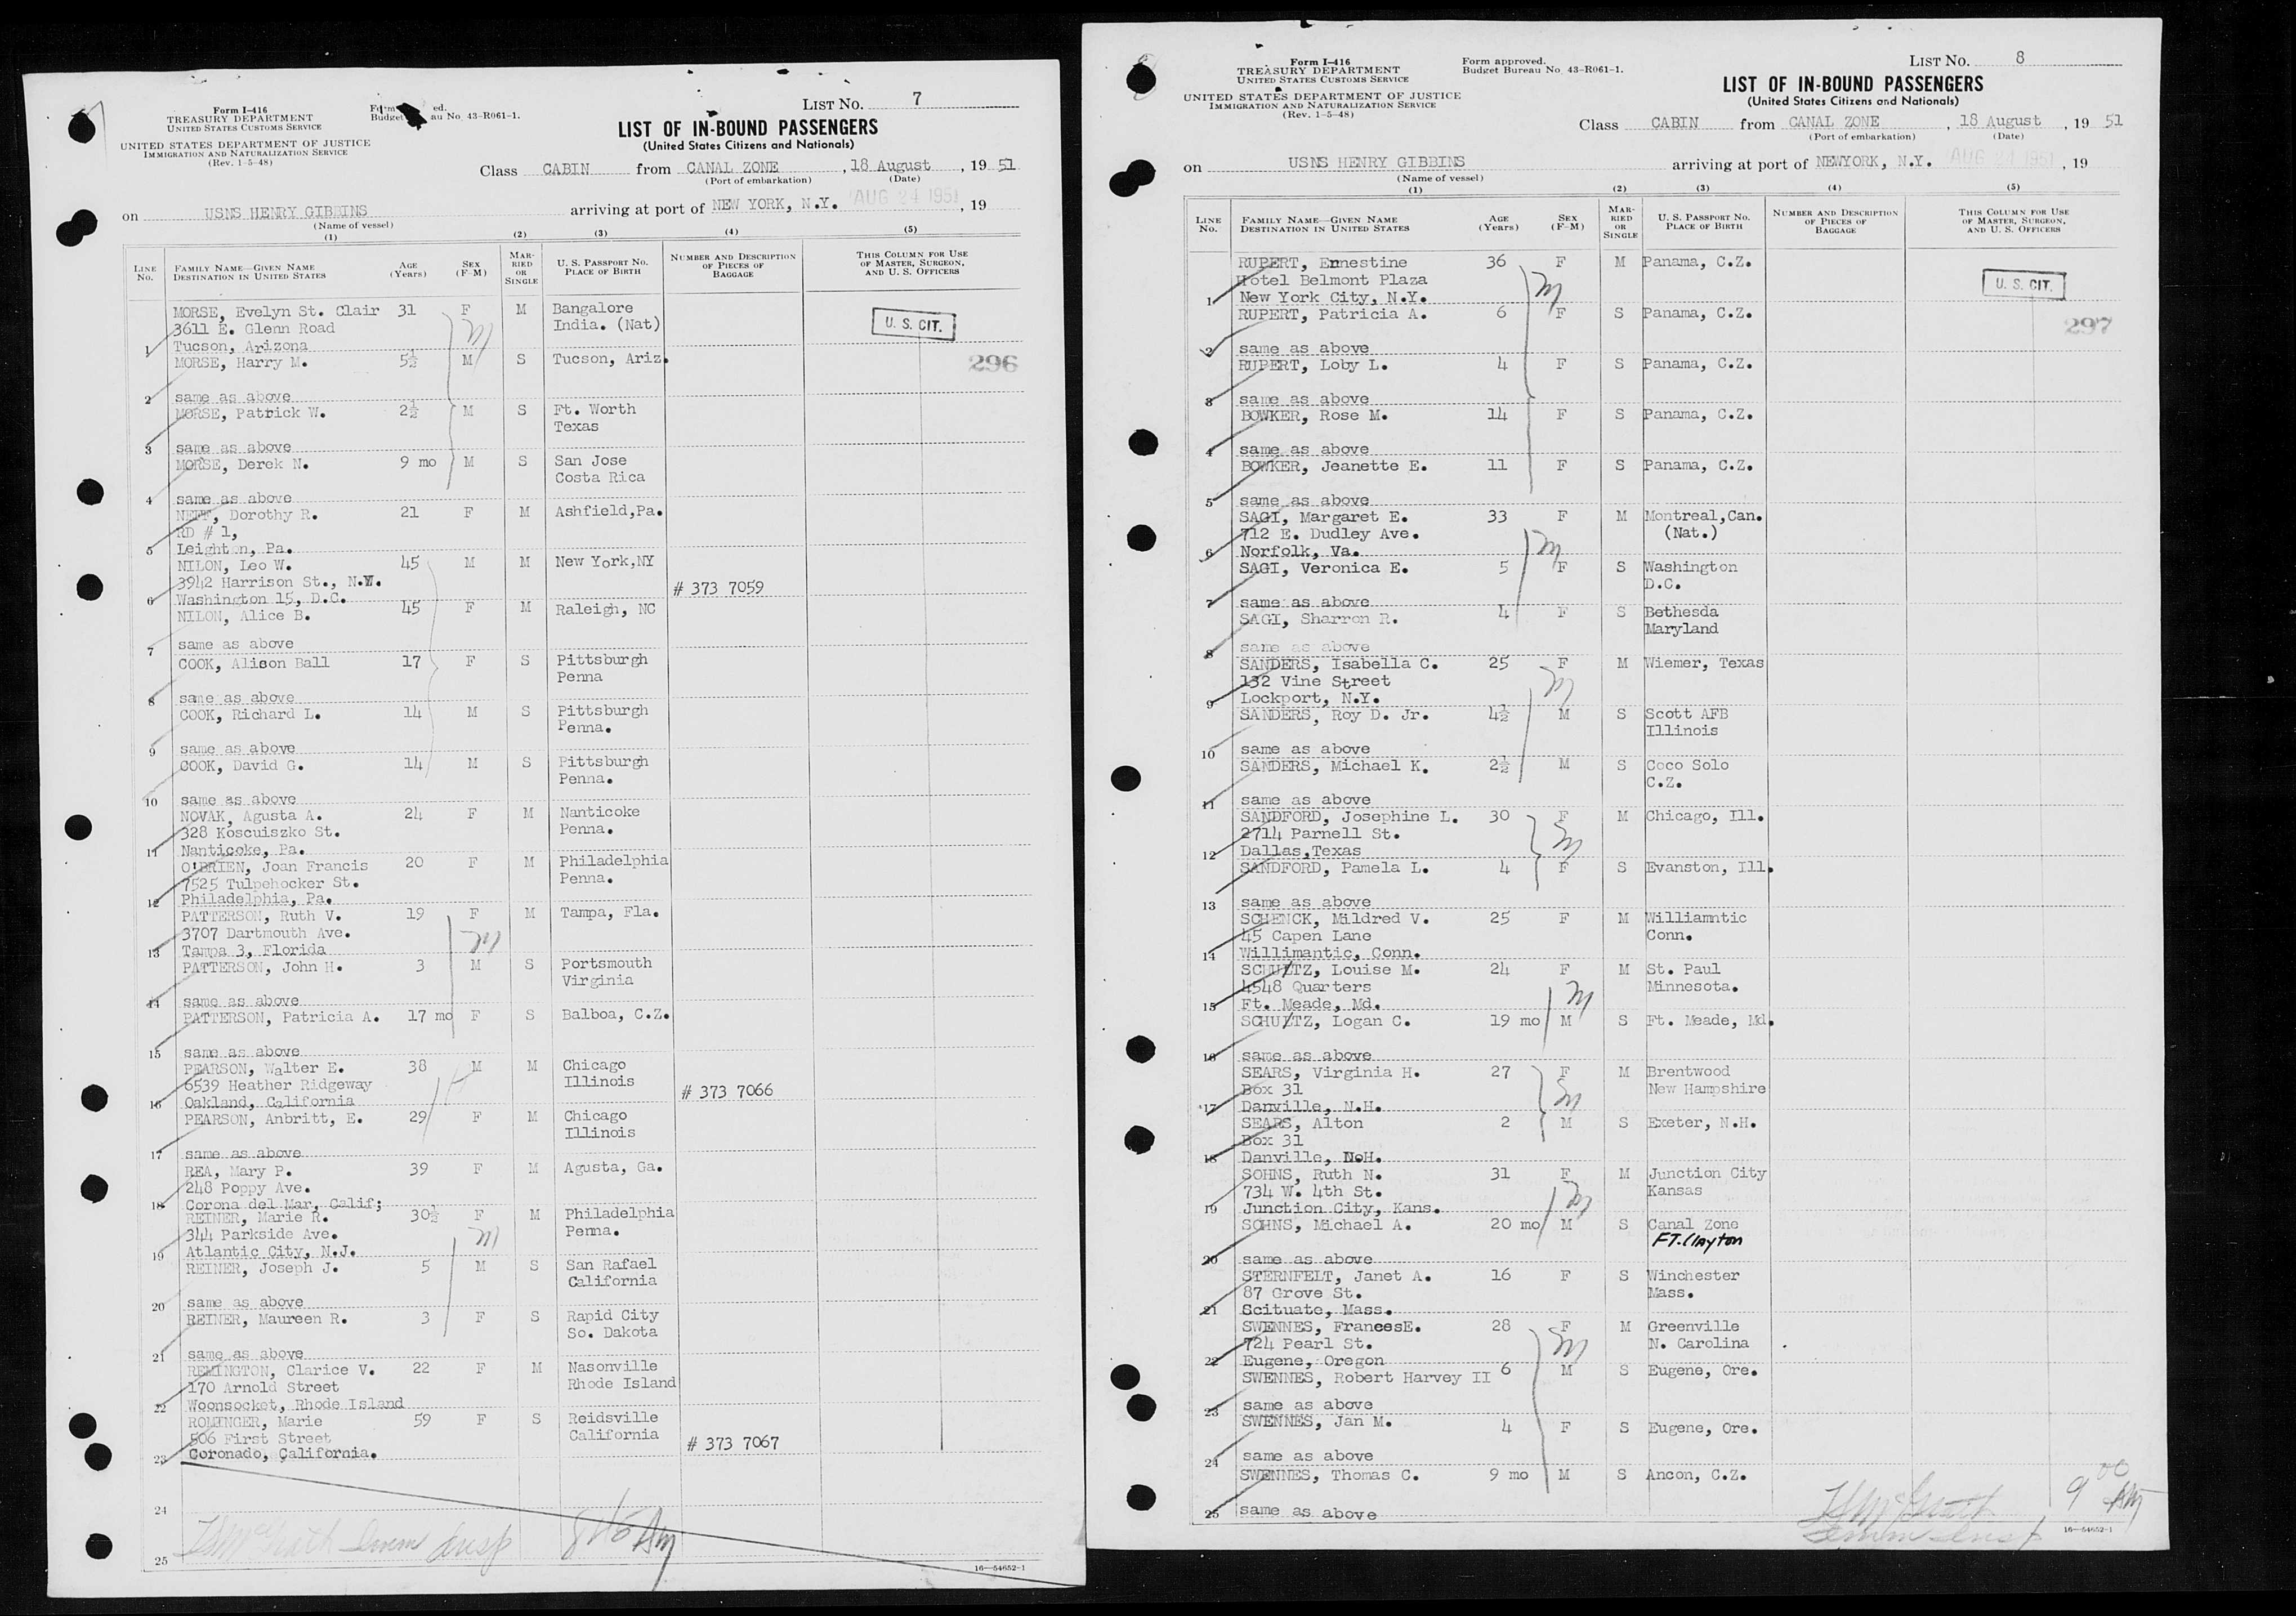 Form I-416
TREASURY DEPARTMENT
UNITED STATES CUSTOMS SERVICE
UNITED STATES DEPARTMENT OF JUSTICE
IMMIGRATION AND NATURALIZATION SERVICE
(Rev. 1-5-48)
ed.
Budget au No. 43-R061-1.
LIST No. 7
LIST OF IN-BOUND PASSENGERS
(United States Citizens and Nationals)
Class CABIN from CANAL ZONE, 18 August, 1951
(Port of embarkation) (Date)
on USNS HENRY GIBBINS arriving at port of NEW YORK, N.Y. AUG 24 1951, 19
(Name of vessel)
(1) (2) (3) (4) (5)
LINE No. FAMILY NAME—GIVEN NAME DESTINATION IN UNITED STATES AGE (Years) SEX (F-M) MARRIED OR SINGLE U. S. PASSPORT No. PLACE OF BIRTH NUMBER AND DESCRIPTION OF PIECES OF BAGGAGE THIS COLUMN FOR USE OF MASTER, SURGEON, AND U. S. OFFICERS
MORSE, Evelyn St. Clair 31 F M Bangalore
3611 E. Glenn Road India. (Nat) U. S. CIT.
1 Tucson, Arizona
MORSE, Harry M. 5½ M S Tucson, Ariz. 296
2 same as above
MORSE, Patrick W. 2½ M S Ft. Worth
Texas
3 same as above
MORSE, Derek N. 9 mo M S San Jose
Costa Rica
4 same as above
NEFF, Dorothy R. 21 F M Ashfield,Pa.
RD # 1,
5 Leighton, Pa.
NILON, Leo W. 45 M M New York,NY
3942 Harrison St., N.W. # 373 7059
6 Washington 15, D.C.
NILON, Alice B. 45 F M Raleigh, NC
7 same as above
COOK, Alison Ball 17 F S Pittsburgh
Penna
8 same as above
COOK, Richard L. 14 M S Pittsburgh
Penna.
9 same as above
COOK, David G. 14 M S Pittsburgh
Penna.
10 same as above
NOVAK, Agusta A. 24 F M Nanticoke
328 Koscuiszko St. Penna.
11 Nanticoke, Pa.
O'BRIEN, Joan Francis 20 F M Philadelphia
7525 Tulpehocker St. Penna.
12 Philadelphia, Pa.
PATTERSON, Ruth V. 19 F M Tampa, Fla.
3707 Dartmouth Ave.
13 Tampa 3, Florida
PATTERSON, John H. 3 M S Portsmouth
Virginia
14 same as above
PATTERSON, Patricia A. 17 mo F S Balboa, C.Z.
15 same as above
PEARSON, Walter E. 38 M M Chicago
6539 Heather Ridgeway Illinois # 373 7066
16 Oakland, California
PEARSON, Anbritt, E. 29 F M Chicago
Illinois
17 same as above
REA, Mary P. 39 F M Agusta, Ga.
248 Poppy Ave.
18 Corona del Mar, Calif;
REINER, Marie R. 30½ F M Philadelphia
344 Parkside Ave. Penna.
19 Atlantic City, N.J.
REINER, Joseph J. 5 M S San Rafael
California
20 same as above
REINER, Maureen R. 3 F S Rapid City
So. Dakota
21 same as above
REMINGTON, Clarice V. 22 F M Nasonville
170 Arnold Street Rhode Island
22 Woonsocket, Rhode Island
ROMINGER, Marie 59 F S Reidsville
506 First Street California # 373 7067
23 Coronado, California.
24
TJ McGrath Imm Insp 845 AM
25
16—54652-1
Form I-416
TREASURY DEPARTMENT
UNITED STATES CUSTOMS SERVICE
UNITED STATES DEPARTMENT OF JUSTICE
IMMIGRATION AND NATURALIZATION SERVICE
(Rev. 1-5-48)
Form approved.
Budget Bureau No. 43-R061-1.
LIST No. 8
LIST OF IN-BOUND PASSENGERS
(United States Citizens and Nationals)
Class CABIN from CANAL ZONE, 18 August, 1951
(Port of embarkation) (Date)
on USNS HENRY GIBBINS arriving at port of NEWYORK, N.Y. AUG 24 1951, 19
(Name of vessel)
(1) (2) (3) (4) (5)
LINE No. FAMILY NAME—GIVEN NAME DESTINATION IN UNITED STATES AGE (Years) SEX (F-M) MARRIED OR SINGLE U. S. PASSPORT No. PLACE OF BIRTH NUMBER AND DESCRIPTION OF PIECES OF BAGGAGE THIS COLUMN FOR USE OF MASTER, SURGEON, AND U. S. OFFICERS
RUPERT, Ernestine 36 F M Panama, C.Z.
Hotel Belmont Plaza U. S. CIT.
1 New York City, N.Y.
RUPERT, Patricia A. 6 F S Panama, C.Z. 297
2 same as above
RUPERT, Loby L. 4 F S Panama, C.Z.
3 same as above
BOWKER, Rose M. 14 F S Panama, C.Z.
4 same as above
BOWKER, Jeanette E. 11 F S Panama, C.Z.
5 same as above
SAGI, Margaret E. 33 F M Montreal,Can.
712 E. Dudley Ave. (Nat.)
6 Norfolk, Va.
SAGI, Veronica E. 5 F S Washington
D.C.
7 same as above
SAGI, Sharron R. 4 F S Bethesda
Maryland
8 same as above
SANDERS, Isabella C. 25 F M Wiemer, Texas
132 Vine Street
9 Lockport, N.Y.
SANDERS, Roy D. Jr. 4½ M S Scott AFB
Illinois
10 same as above
SANDERS, Michael K. 2½ M S Coco Solo
C.Z.
11 same as above
SANDFORD, Josephine L. 30 F M Chicago, Ill.
2714 Parnell St.
12 Dallas,Texas
SANDFORD, Pamela L. 4 F S Evanston, Ill.
13 same as above
SCHENCK, Mildred V. 25 F M Williamntic
45 Capen Lane Conn.
14 Willimantic, Conn.
SCHULTZ, Louise M. 24 F M St. Paul
4548 Quarters Minnesota.
15 Ft. Meade, Md.
SCHULTZ, Logan C. 19 mo M S Ft. Meade, Md.
16 same as above
SEARS, Virginia H. 27 F M Brentwood
Box 31 New Hampshire
17 Danville, N.H.
SEARS, Alton 2 M S Exeter, N.H.
Box 31
18 Danville, N.H.
SOHNS, Ruth N. 31 F M Junction City
734 W. 4th St. Kansas
19 Junction City, Kans.
SOHNS, Michael A. 20 mo M S Canal Zone
FT. Clayton
20 same as above
STERNFELT, Janet A. 16 F S Winchester
87 Grove St. Mass.
21 Scituate, Mass.
SWENNES, FrancesE. 28 F M Greenville
724 Pearl St. N. Carolina
22 Eugene, Oregon
SWENNES, Robert Harvey II 6 M S Eugene, Ore.
23 same as above
SWENNES, Jan M. 4 F S Eugene, Ore.
24 same as above
SWENNES, Thomas C. 9 mo M S Ancon, C.Z.
25 same as above
TJ McGrath 9 00 AM
Imm Insp
16—54652-1